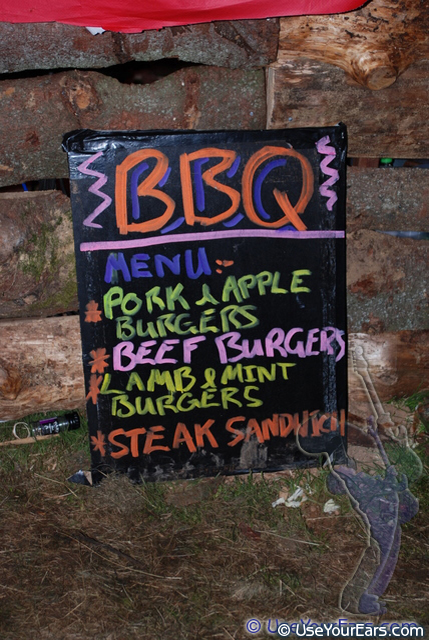 BBQ
MENU:-
* PORK & APPLE
BURGERS
* BEEF BURGERS
* LAMB & MINT
BURGERS
* STEAK SANDWICH
© UseYourEars.com
© UseYourEars.com